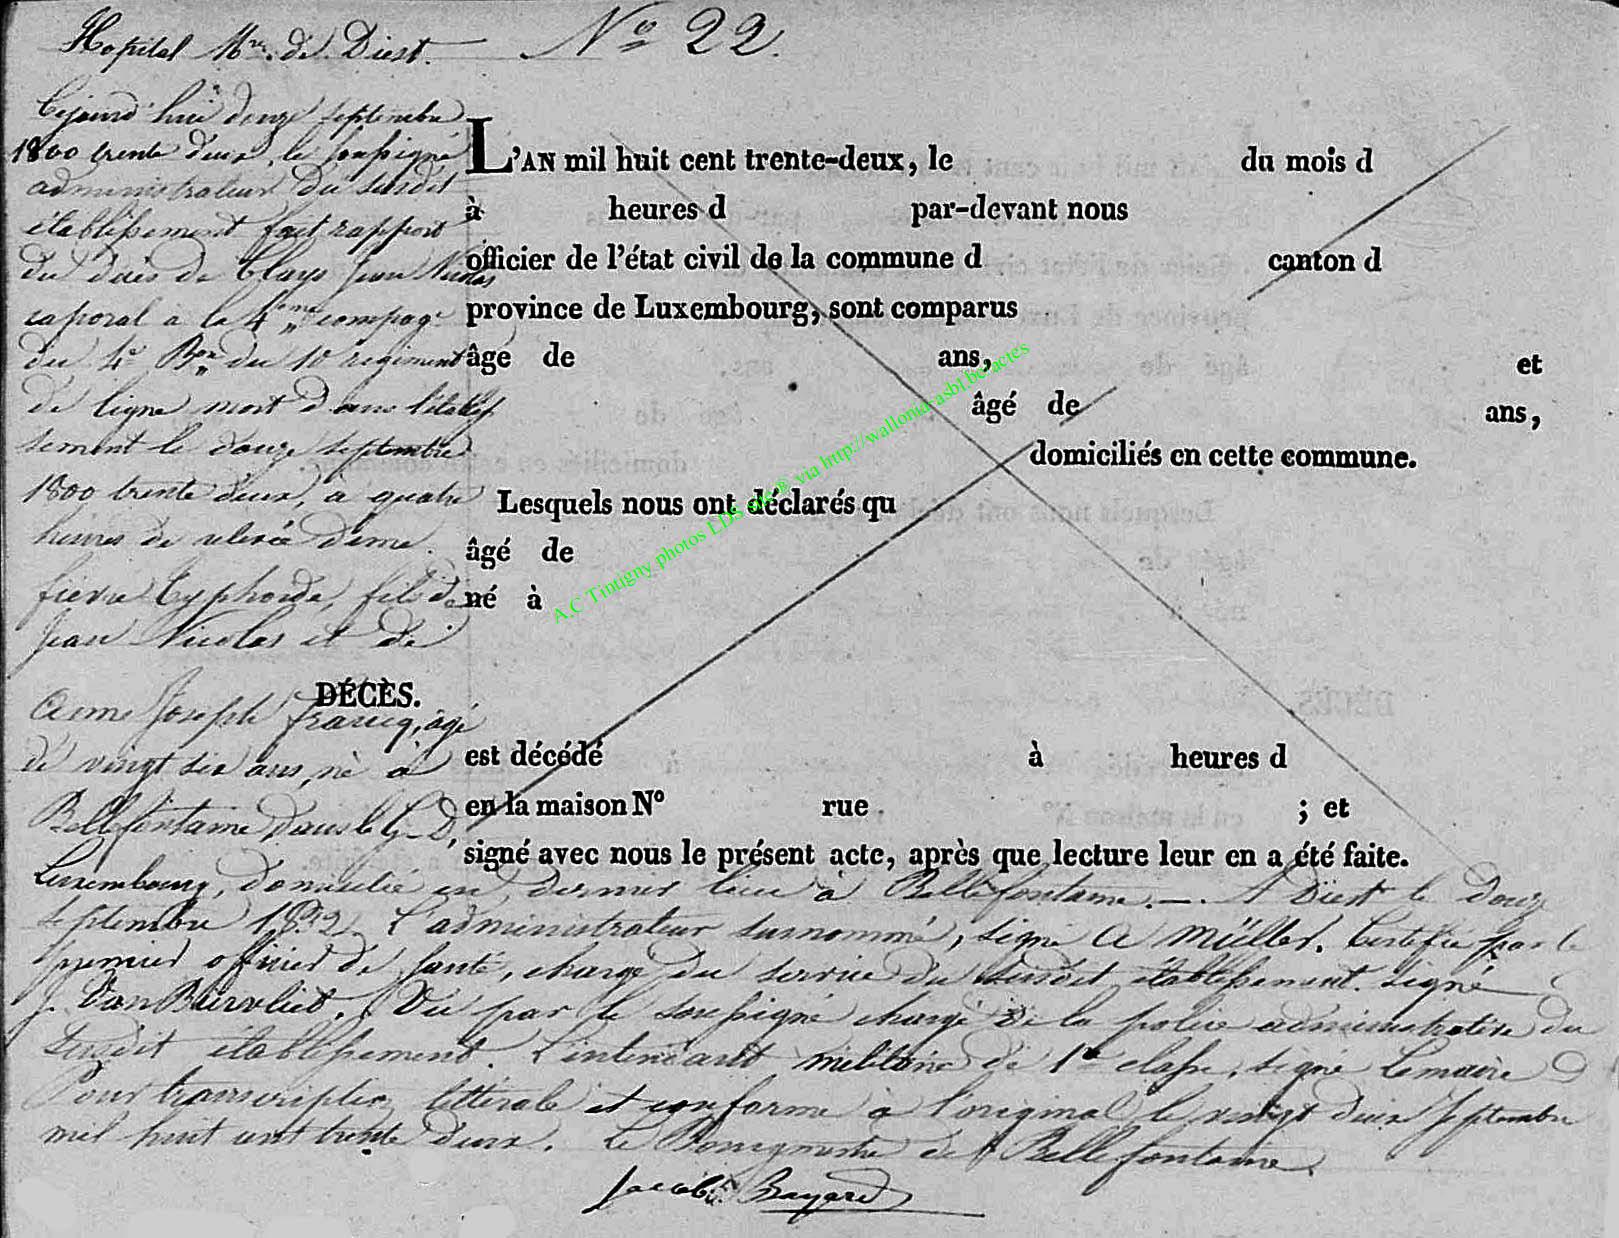 Hopital Mre. de Diest. No 22.
Cejourd'hui douze septembre
1800 trente deux, le soussigné
administrateur du susdit
établissement fait rapport
du décès de Clays Jean Nicolas
caporal à la 4eme compage
du 4e Bon du 10 regiment
de ligne mort dans l'établis
sement le douze septembre
1800 trente deux, à quatre
heures de relevée d'une
fievre typhoïde, fils de
Jean Nicolas et de
Anne Joseph Francq, âgé
de vingt six ans, né à
Bellefontaine dans le G. D.
L'AN mil huit cent trente-deux, le du mois d
à heures d par-devant nous
officier de l'état civil de la commune d canton d
province de Luxembourg, sont comparus
âge de ans, et
âgé de ans,
domiciliés en cette commune.
Lesquels nous ont déclarés qu
âgé de
né à
DÉCÈS.
est décédé à heures d
en la maison No rue ; et
signé avec nous le présent acte, après que lecture leur en a été faite.
Luxembourg, domicilié en dernier lieu à Bellefontaine. —. A Diest le douze
septembre 1832. L'administrateur surnommé, signé A Müller. Certifié par le
premier officier de santé, chargé du service du susdit établissement. signé
J. Van Biervliet. Vu par le soussigné chargé de la police administrative du
susdit établissement. L'intendant militaire de 1re classe, signé Lemaire
Pour transcription littérale et conforme à l'original le vingt deux septembre
mil huit cent trente deux. Le Bourgmestre de Bellefontaine.
Jacobi Bayard
A.C Tintigny photos LDS site® via http://wallonia-asbl.be/actes